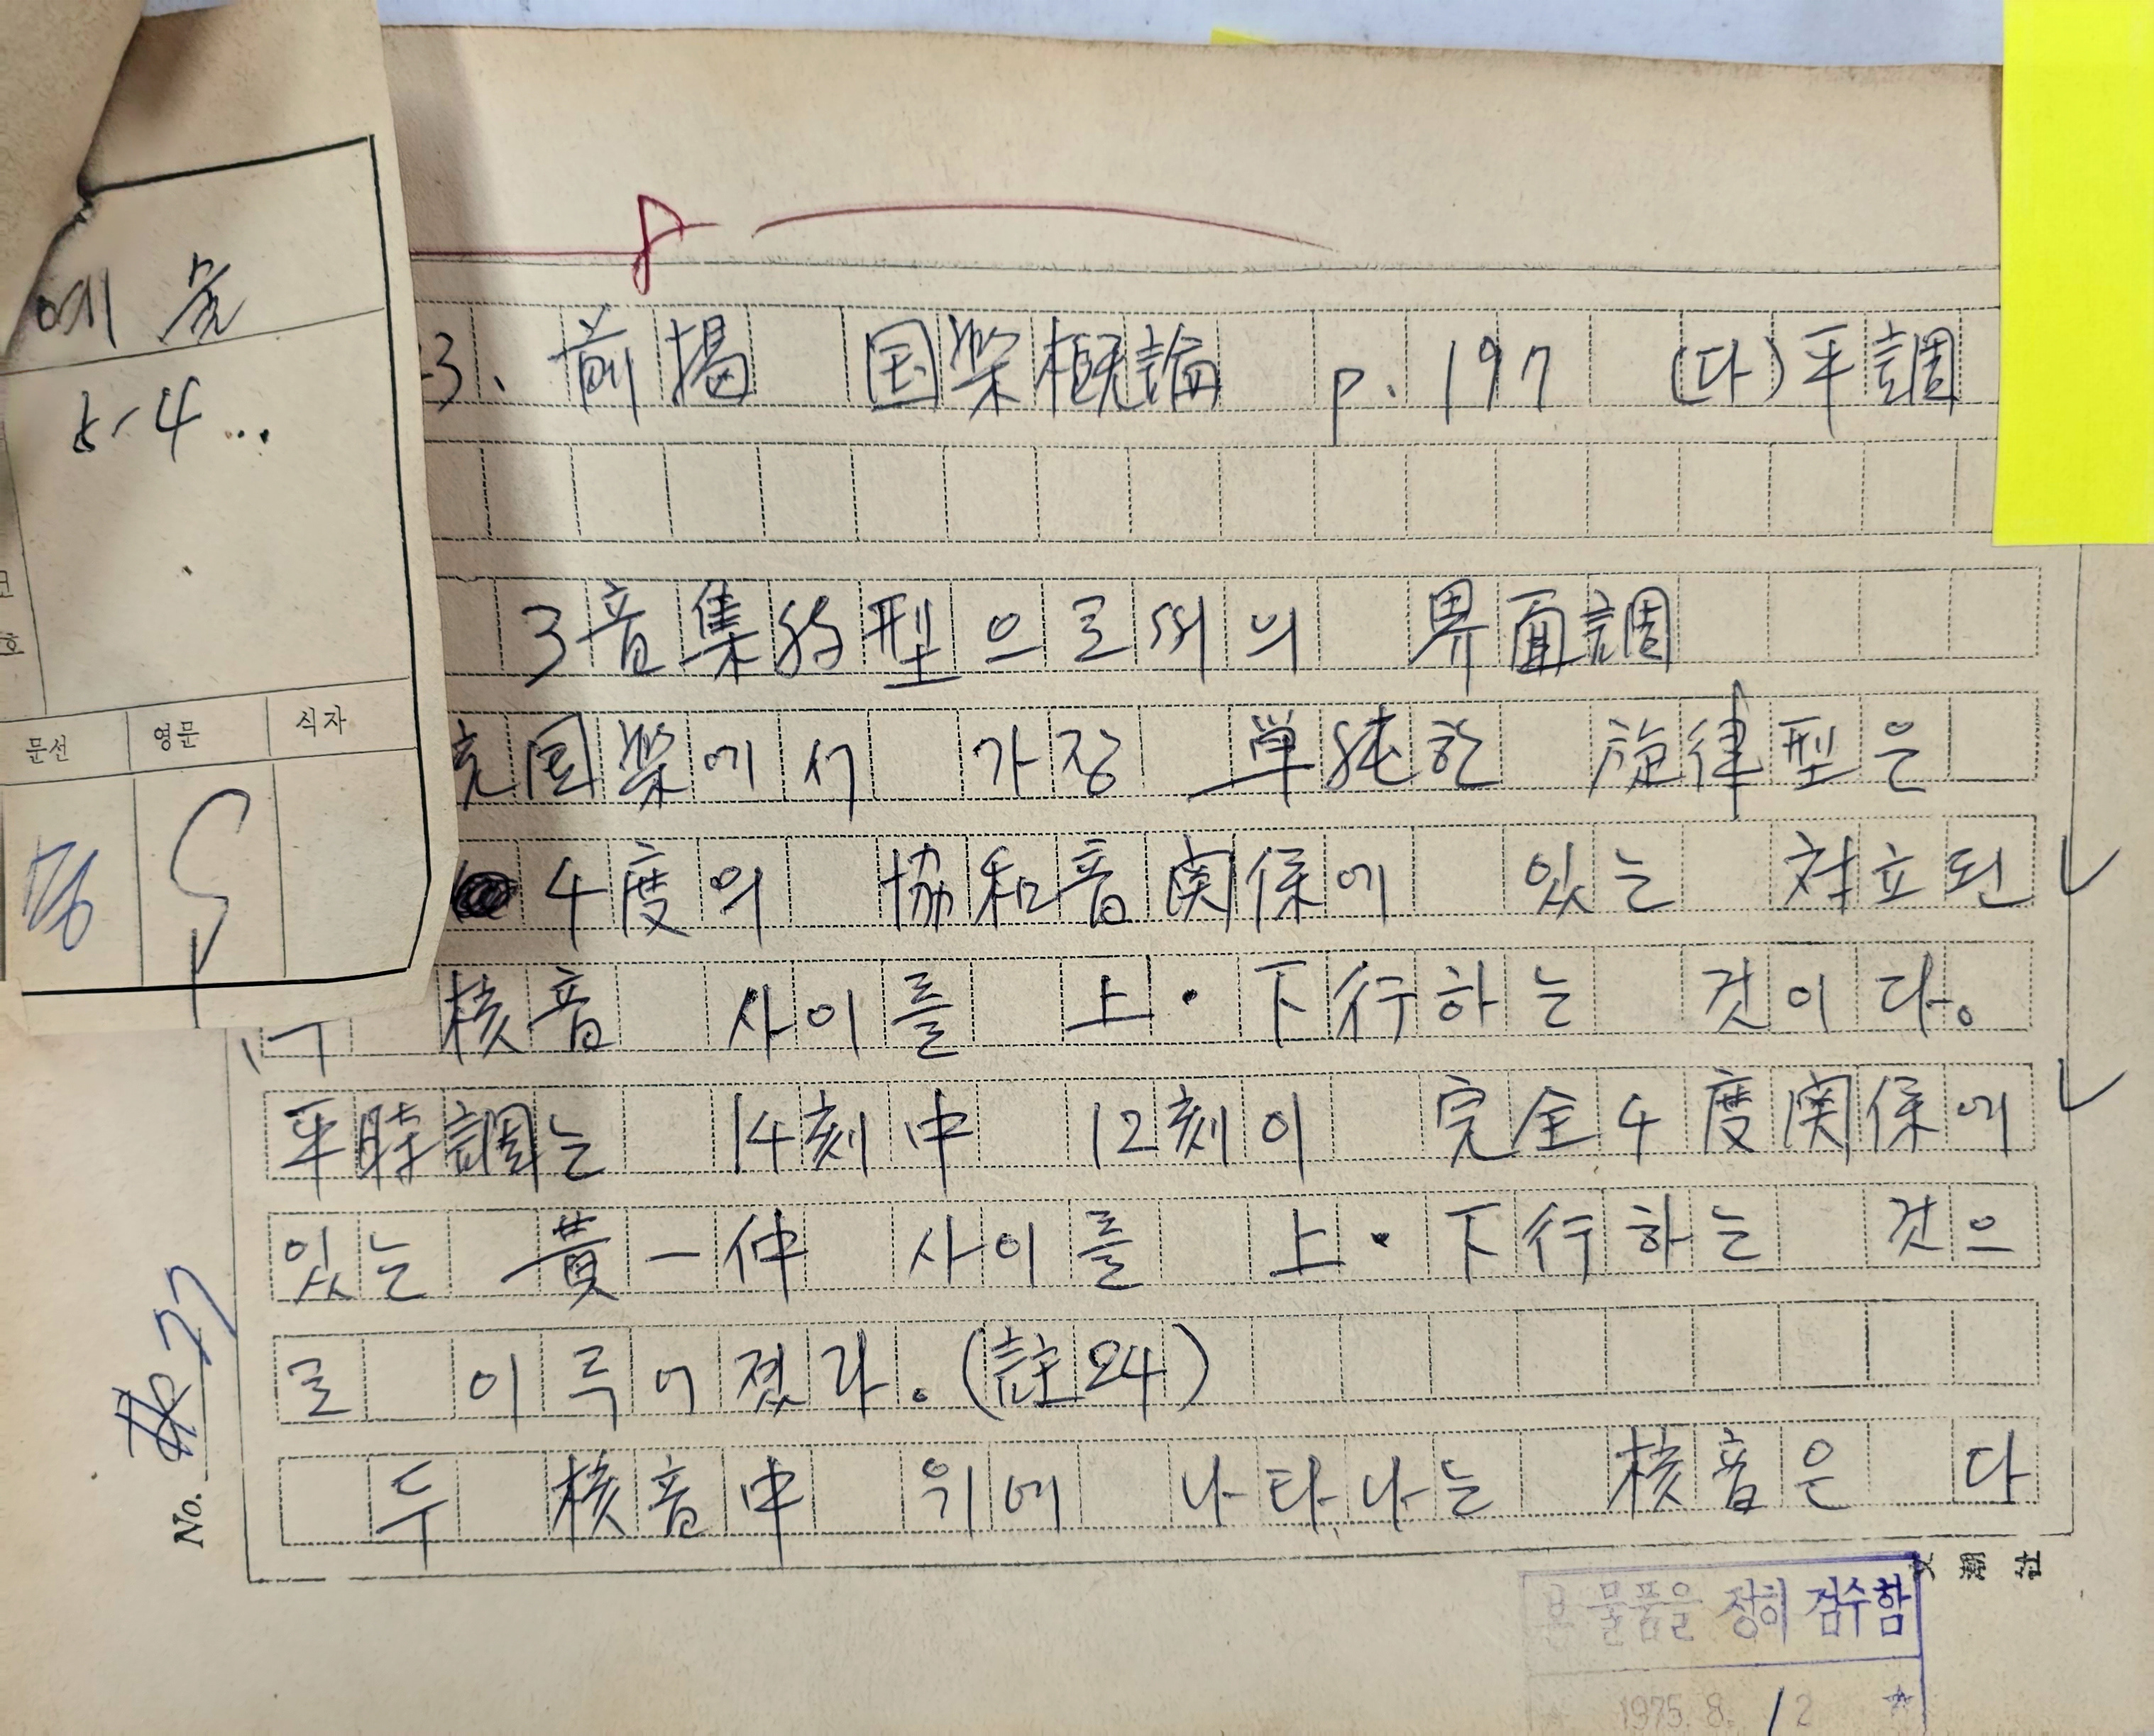 예术
5-4...
문선 영문 식자
23. 前掲 国楽概論 p. 197 (다)平調
3音集約型으로써의 界面調
国楽에서 가장 単純한 旋律型은
4度의 協和音関係에 있는 対立된
核音 사이를 上·下行하는 것이다。
平時調는 14刻中 12刻이 完全4度関係에
있는 黄-仲 사이를 上·下行하는 것으
로 이루어졌다。(註24)
두 核音中 위에 나타나는 核音은 다
No. 27
文潮社
본 물품을 정히 검수함
1975. 8. 12